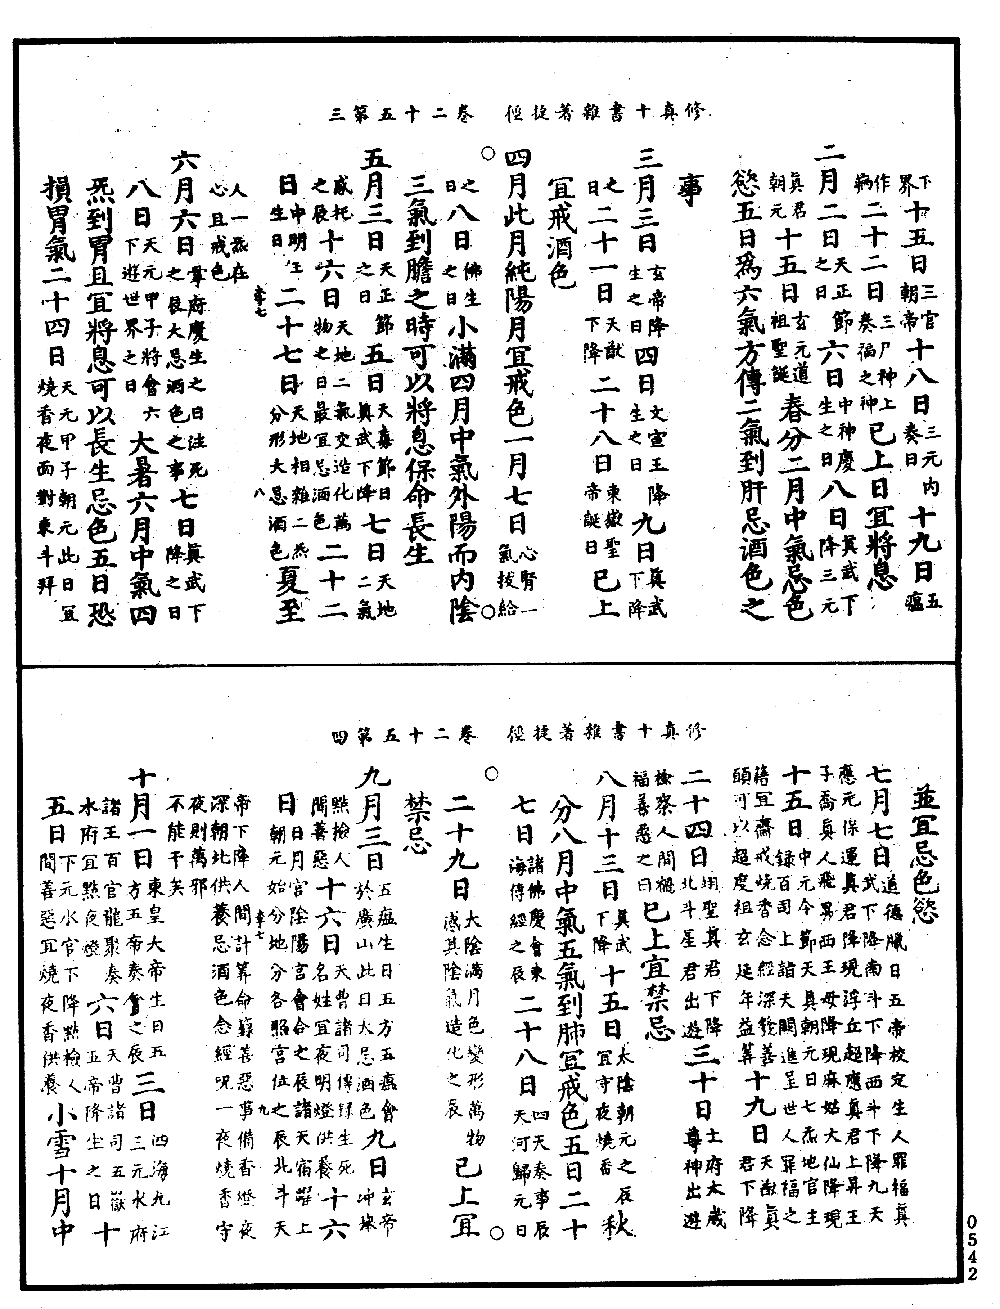 修真十書雜著捷徑　卷二十五第三
下界十五日三官朝帝十八日三元內奏日十九日五瘟
作病二十二日三尸神上奏福之神已上日宜將息
二月二日天正節之日六日中神慶生之日八日真武下降三元
真君朝元十五日玄元道祖聖誕春分二月中氣忌色
慾五日為六氣方傳二氣到肝忌酒色之
事
三月三日玄帝降生之日四日文宣王降生之日九日真武下降
之日二十一日天猷下降二十八日東嶽聖帝誕日已上
宜戒酒色
四月此月純陽月宜戒色一月七日心腎一氣拔給
之日八日佛生之日小滿四月中氣外陽而內陰
三氣到膽之時可以將息保命長生
五月三日天正節之日五日天臺節日真武下降七日天地二氣
感托之辰十六日天地二氣交造化萬物之日最宜忌酒色二十二
日中明王生日二十七日天地相雜二炁分形大忌酒色夏至
章七
八
人一炁在心且戒色
六月六日掌府慶生之日注死之辰大忌酒色之事七日真武下降之日
八日天元甲子將會六下遊世界之日大暑六月中氣四
炁到胃且宜將息可以長生忌色五日恐
損胃氣二十四日天元甲子朝元此日宜燒香夜面對東斗拜
修真十書雜著捷徑　卷二十五第四
並宜忌色慾
七月七日道德臘日五帝校定生人罪福真武下降南斗下降西斗下降九天
應元保運真君降現浮丘超應真君上昇王子喬真人飛昇西王母降現麻姑大仙降現
十五日中元令節天真朝元日七炁地官主錄百司上詣天闕進呈世人罪福之
籍宜齋戒燒香念經深發善願可以超度祖玄延年益算十九日天猷真君下降
二十四日翊聖真君下降北斗星君出遊三十日土府太歲尊神出遊
檢察人間禍福善惡之日已上宜禁忌
八月十三日真武下降十五日太陰朝元之辰宜守夜燒香秋
分八月中氣五氣到肺宜戒色五日二十
七日諸佛慶會東海傳經之辰二十八日四天奏事辰天河歸元日
二十九日大陰滿月色變形萬物感其陰氣造化之辰已上宜
禁忌
九月三日五瘟生日五方五瘟會於廣山此日大忌酒色九日玄帝沖舉
點檢人間善惡十六日天曹諸司俾録生死名姓宜夜明燈供養十六
日日月宮陰陽宮會命之辰諸天宿曜上朝元始分天地分各照宮位之辰北斗天
章七
九
帝下降人間計算命籍善惡事備香燈夜深朝北供養忌酒色念經呪一夜燒香守
夜則萬邪不能干矣
十月一日東皇大帝生日五方五帝奏會之辰三日四海九江三元水府
諸王百官龍聚奏水府宜點夜燈六日天曹諸司五嶽五帝降生之日十
五日下元水官下降點檢人間善惡宜燒夜香供養小雪十月中
0542